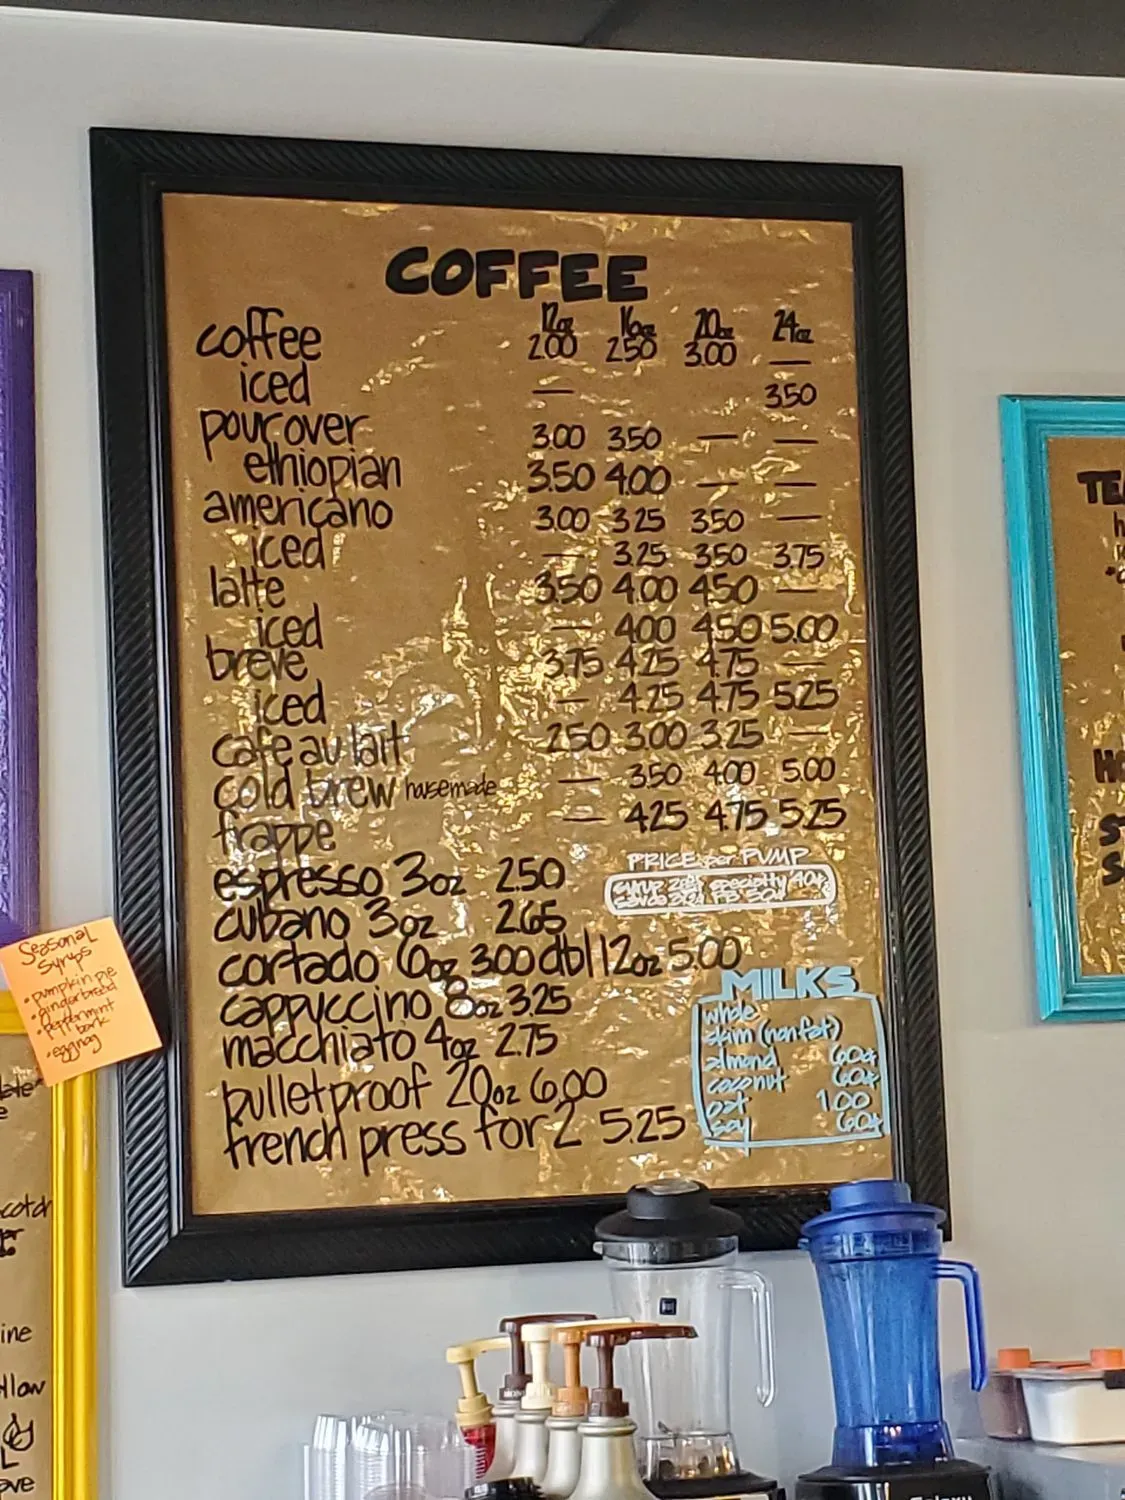 COFFEE
12oz 16oz 20oz 24oz
coffee 2.00 2.50 3.00 —
iced — 3.50
pour over 3.00 3.50 — —
ethiopian 3.50 4.00 — —
americano 3.00 3.25 3.50 —
iced — 3.25 3.50 3.75
latte 3.50 4.00 4.50 —
iced — 4.00 4.50 5.00
breve 3.75 4.25 4.75 —
iced — 4.25 4.75 5.25
cafe au lait 2.50 3.00 3.25 —
cold brew housemade — 3.50 4.00 5.00
frappe — 4.25 4.75 5.25
espresso 3oz 2.50
cubano 3oz 2.65
cortado 6oz 3.00 dbl 12oz 5.00
cappuccino 8oz 3.25
macchiato 4oz 2.75
bulletproof 20oz 6.00
french press for 2 5.25
PRICE per PUMP
syrup specialty 40¢
MILKS
whole
skim (nonfat)
almond 60¢
coconut 60¢
oat 1.00
soy 60¢
Seasonal
Syrups
• pumpkin pie
• gingerbread
• peppermint
bark
• eggnog